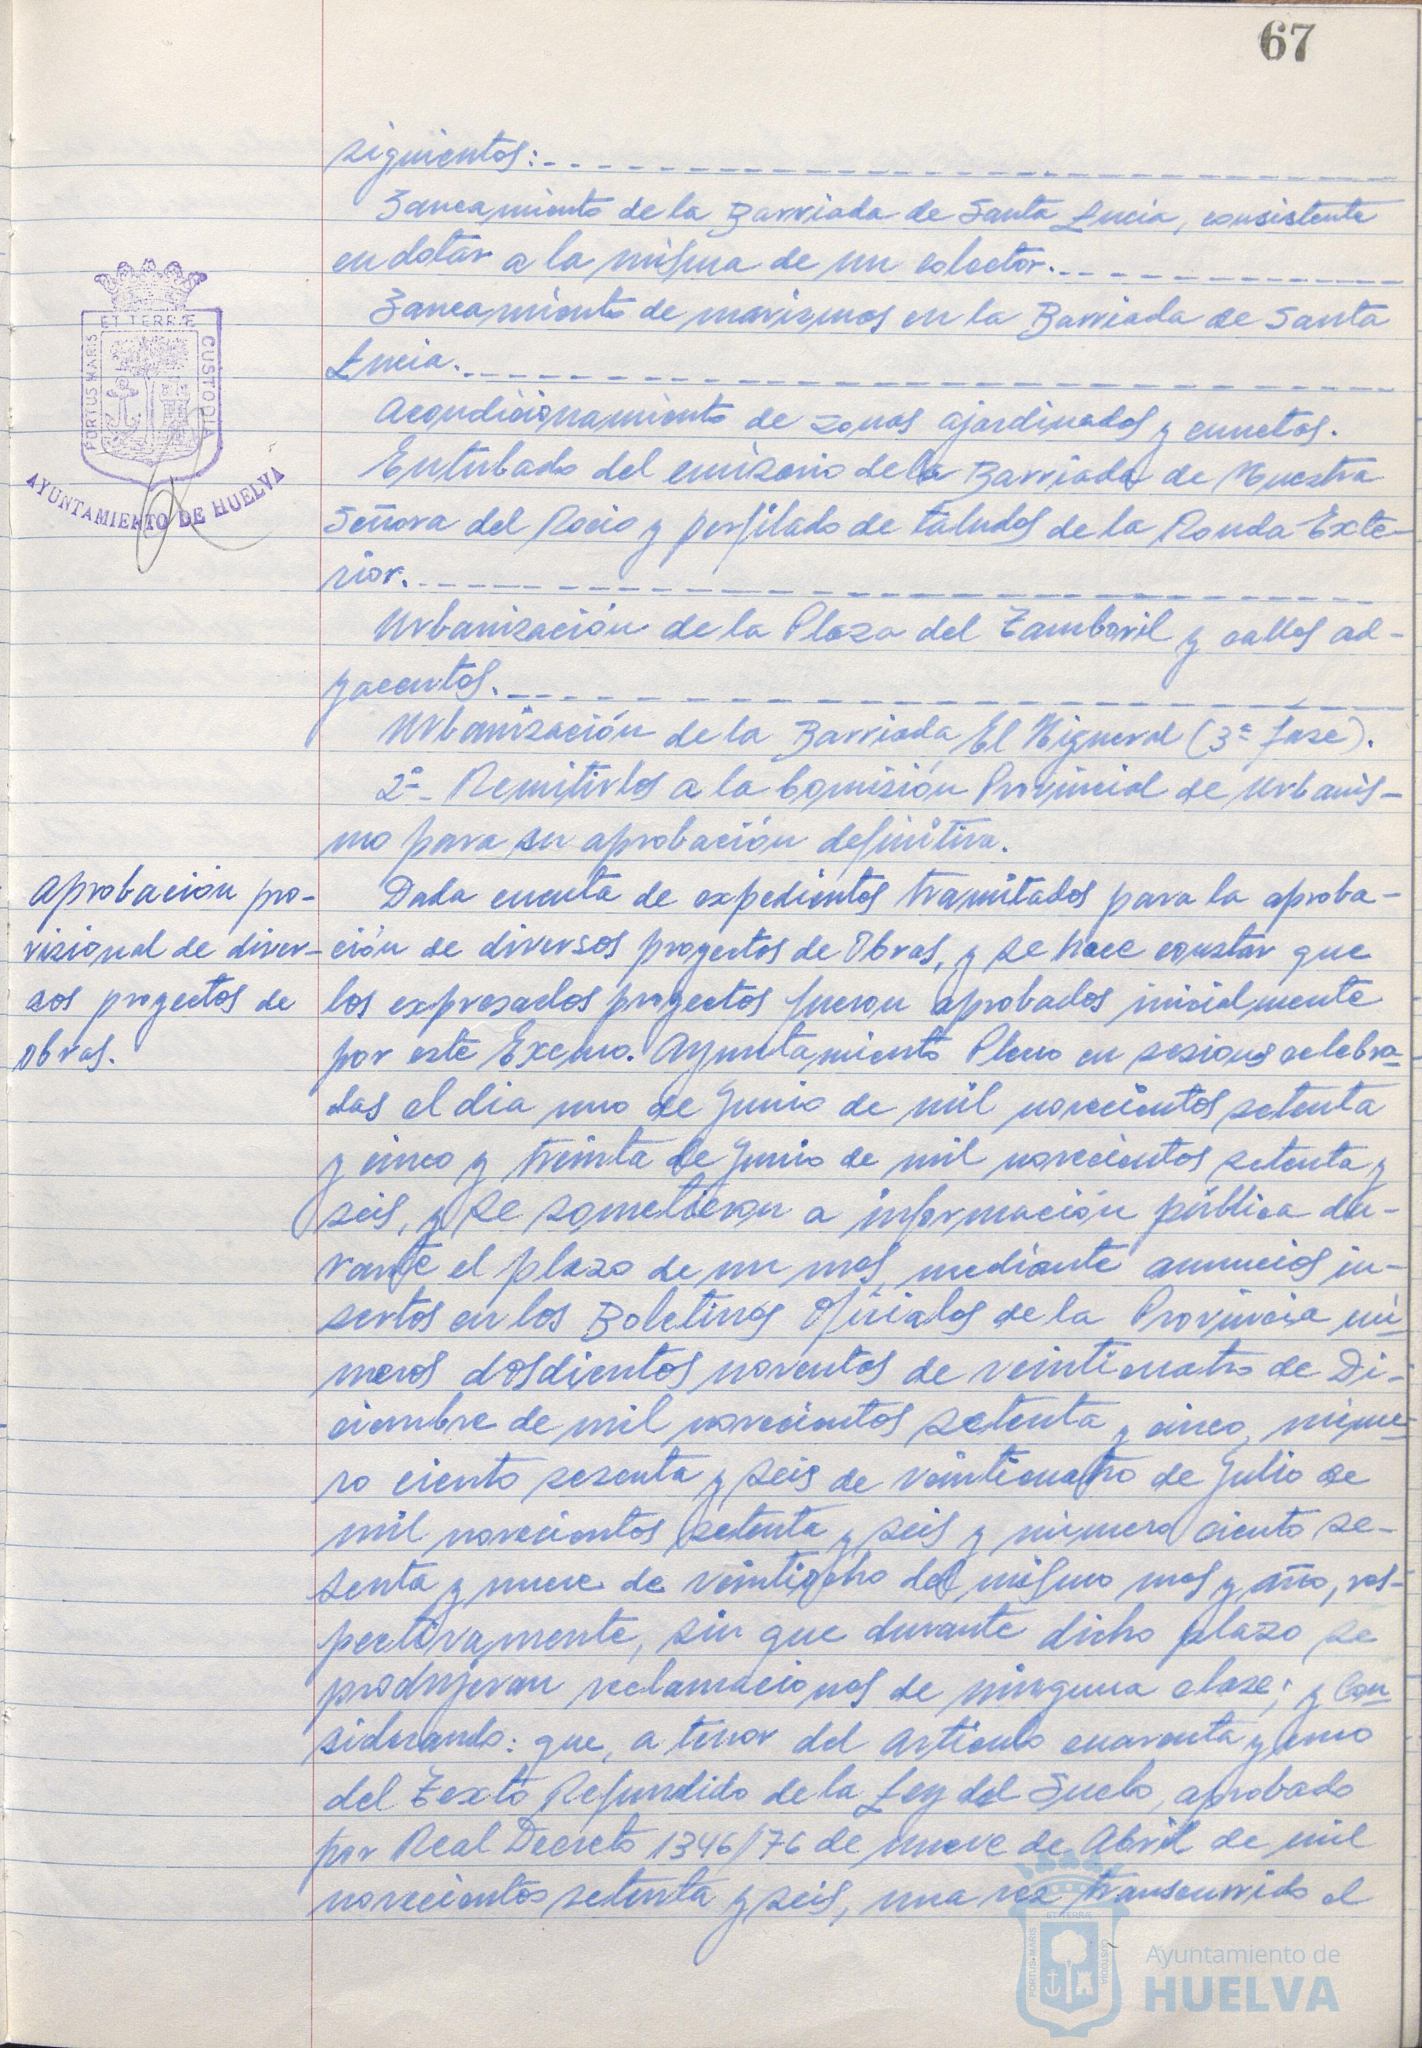 67
siguientes:
Saneamiento de la Barriada de Santa Lucia, consistente
en dotar a la misma de un colector.
Saneamiento de marismas en la Barriada de Santa
Lucia.
Acondicionamiento de zonas ajardinadas y cunetas.
Entubado del emisario de la Barriada de Nuestra
Señora del Rocio y perfilado de taludes de la Ronda Exte-
rior.
Urbanización de la Plaza del Tamboril y calles ad-
yacentes.
Urbanización de la Barriada El Higueral (3ª fase).
2º- Remitirlos a la Comisión Provincial de Urbanis-
mo para su aprobación definitiva.
Aprobación pro-
visional de diver-
sos proyectos de
obras.
Dada cuenta de expedientes tramitados para la aproba-
ción de diversos proyectos de Obras, y se hace constar que
los expresados proyectos fueron aprobados inicialmente
por este Excmo. Ayuntamiento Pleno en sesiones celebra-
das el dia uno de Junio de mil novecientos setenta
y cinco y treinta de Junio de mil novecientos setenta y
seis, y se sometieron a información pública du-
rante el plazo de un mes, mediante anuncios in-
sertos en los Boletines Oficiales de la Provincia nú-
meros doscientos noventa de veinticuatro de Di-
ciembre de mil novecientos setenta y cinco, núme-
ro ciento sesenta y seis de veinticuatro de Julio de
mil novecientos setenta y seis y número ciento se-
senta y nueve de veintiocho del mismo mes y año, res-
pectivamente, sin que durante dicho plazo se
produjeran reclamaciones de ninguna clase; y Con
siderando: que, a tenor del articulo cuarenta y uno
del Texto Refundido de la Ley del Suelo, aprobado
por Real Decreto 1346/76 de nueve de Abril de mil
novecientos setenta y seis, una vez transcurrido el
ET TERRÆ
PORTUS MARIS
CUSTODIA
AYUNTAMIENTO DE HUELVA
ET TERRÆ
PORTUS MARIS
CUSTODIA
Ayuntamiento de
HUELVA